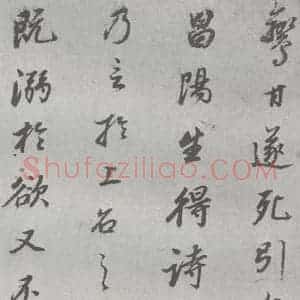 甘遂死引
昌陽生得詩
乃言於上名之
既溺於欲又不
Shufaziliao.com